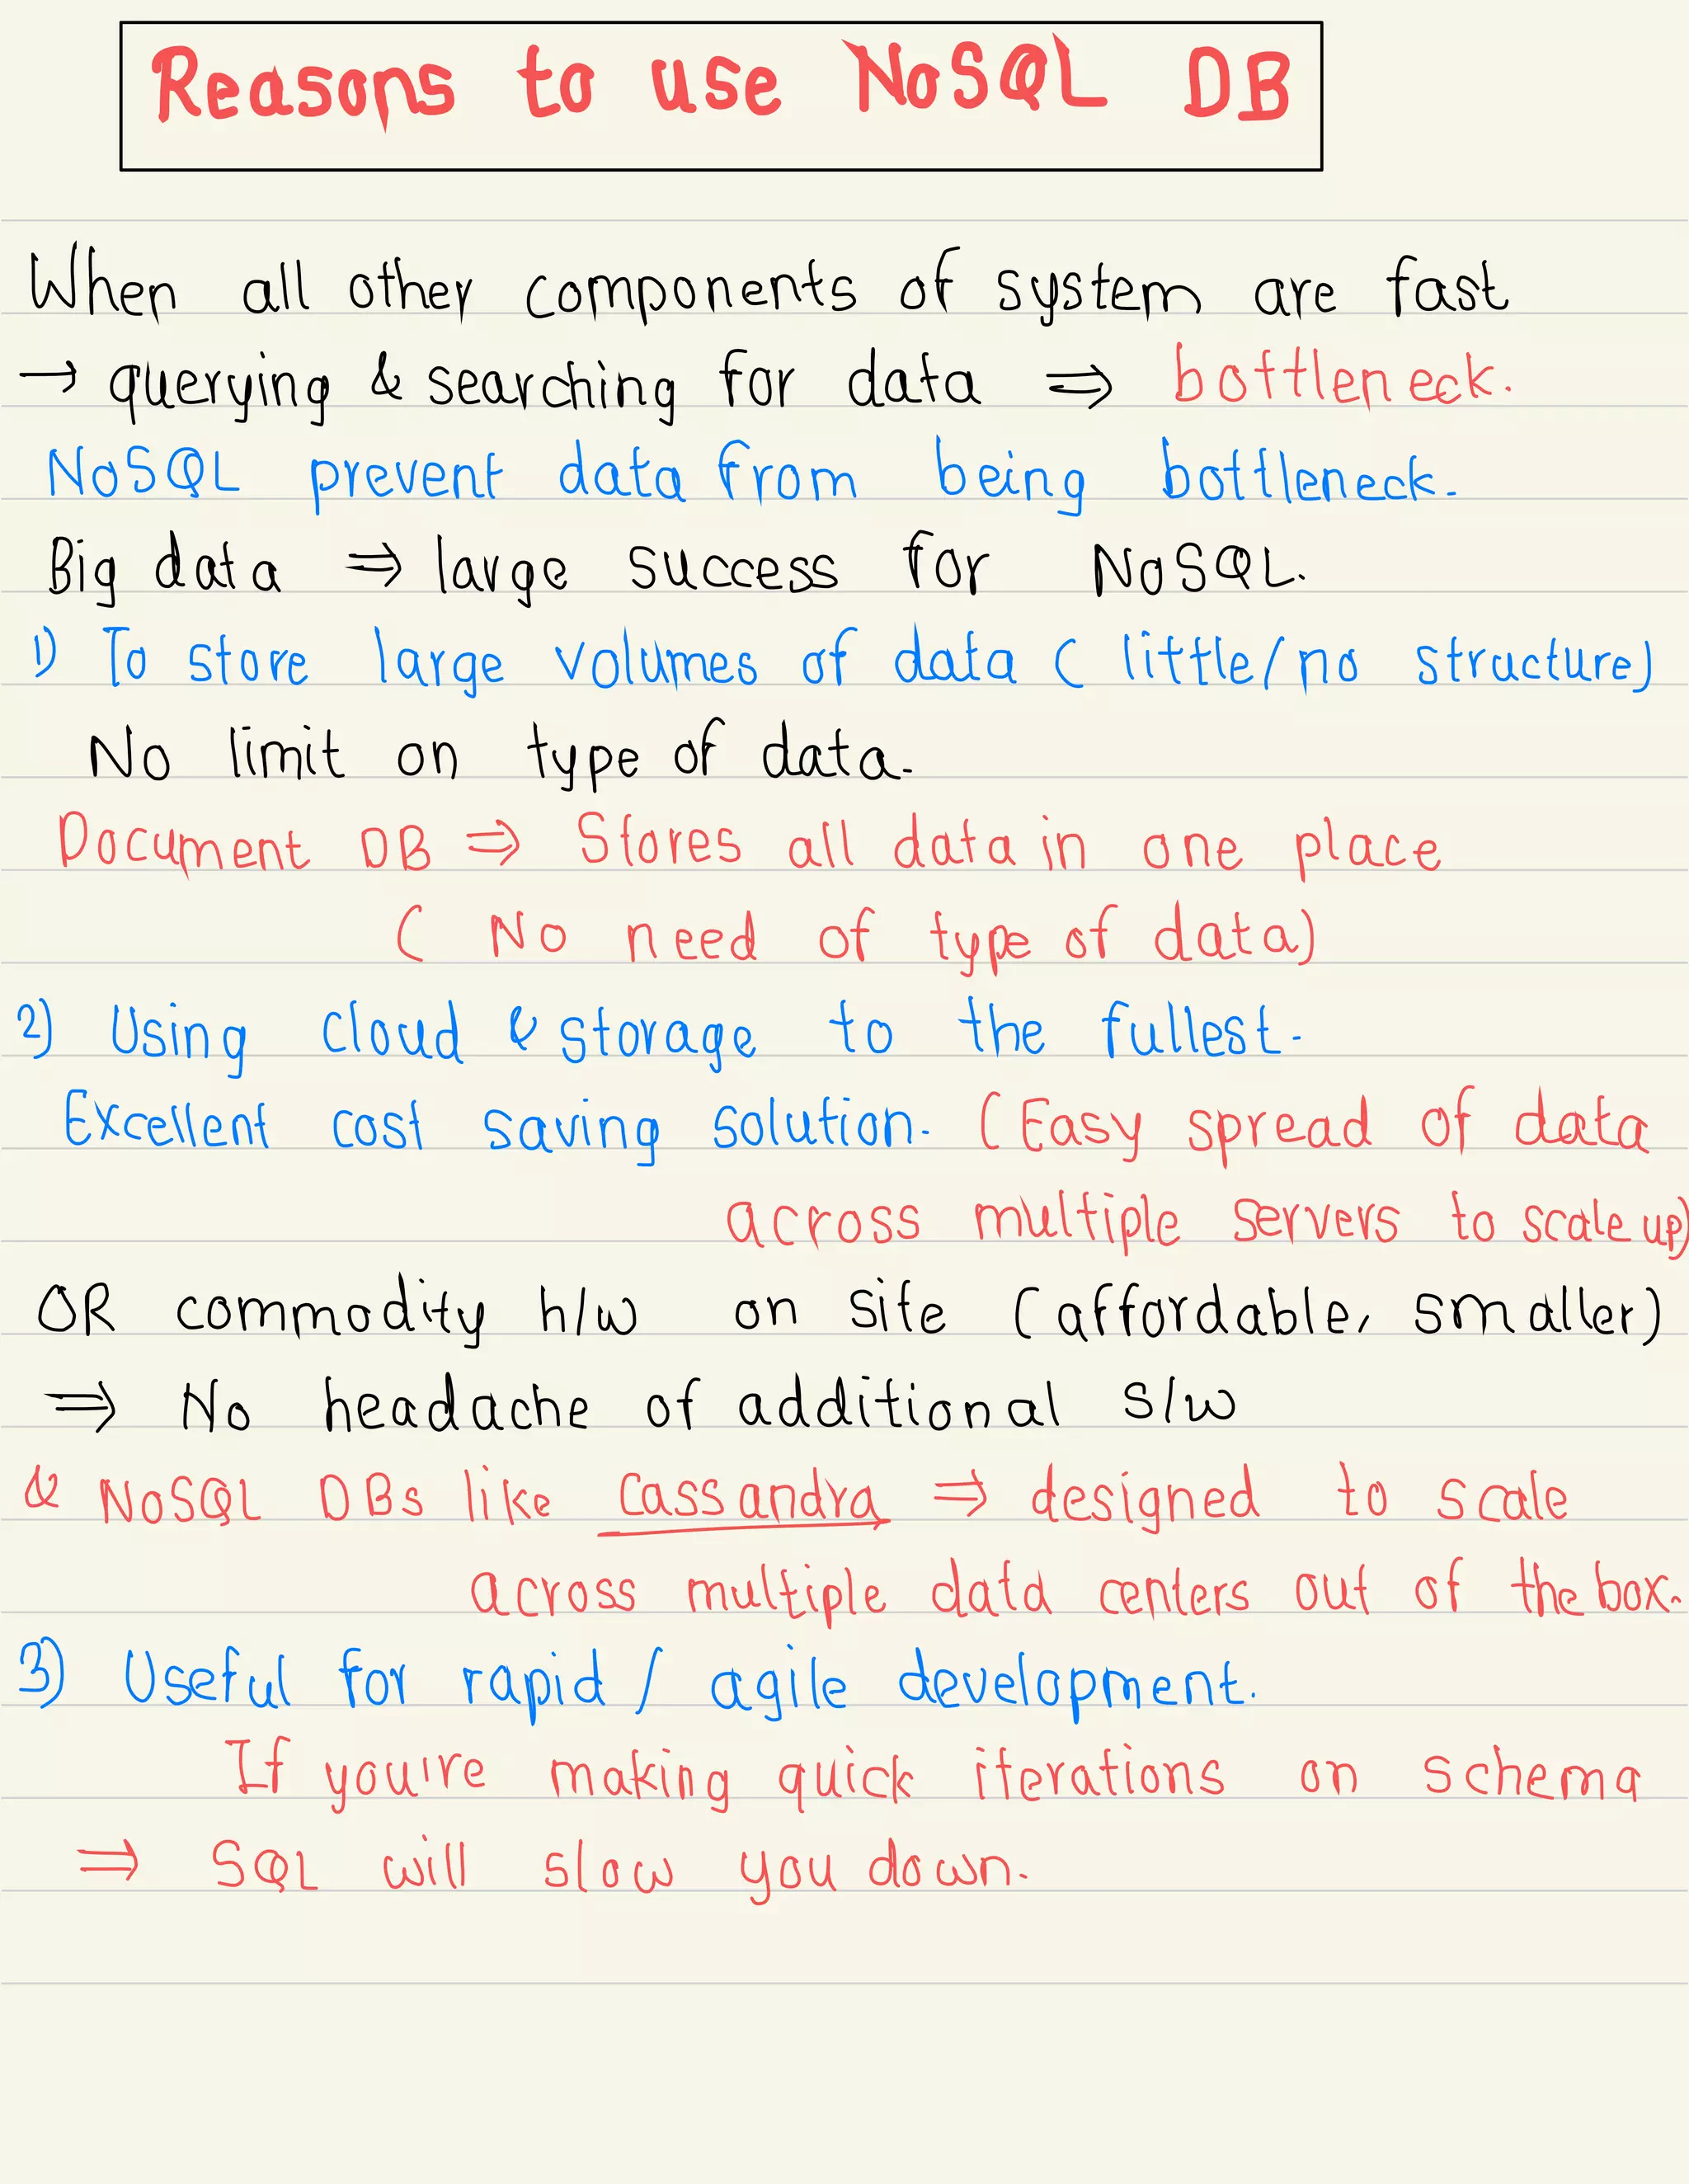 Reasons to use NoSQL DB
When all other components of system are fast
→ querying & searching for data ⇒ bottleneck.
NoSQL prevent data from being bottleneck.
Big data ⇒ large success for NoSQL.
1) To store large volumes of data ( little/no structure)
No limit on type of data.
Document DB ⇒ Stores all data in one place
( No need of type of data)
2) Using cloud & storage to the fullest.
Excellent cost saving solution. (Easy spread of data
across multiple servers to scale up)
OR commodity h/w on site (affordable, smaller)
⇒ No headache of additional s/w
& NoSQL DBs like Cassandra ⇒ designed to scale
across multiple data centers out of the box.
3) Useful for rapid / agile development.
If you're making quick iterations on schema
⇒ SQL will slow you down.